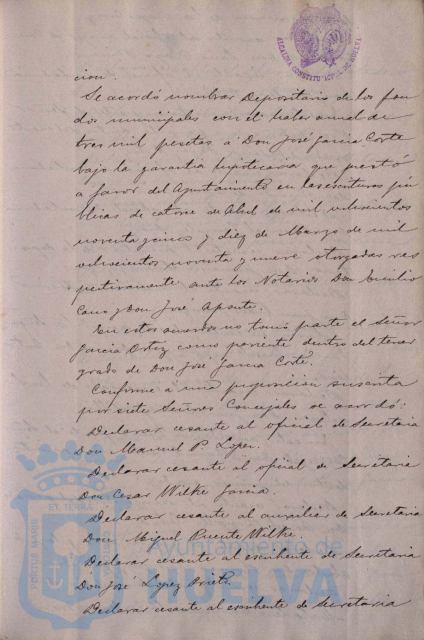 ALCALDIA CONSTITUCIONAL DE HUELVA
cion.
Se acordó nombrar Depositario de los fon
dos municipales con el haber anual de
tres mil pesetas á Don José Garcia Corte
bajo la garantia hipotecaria que prestó
a favor del Ayuntamiento en las escrituras pú
blicas de catorce de Abril de mil ochocientos
noventa y cinco y diez de Marzo de mil
ochocientos noventa y nueve otorgadas res
pectivamente ante los Notarios Don Emilio
Cano y Don José Aponte.
En estos acuerdos no tomó parte el Señor
Garcia Ortiz como pariente dentro del tercer
grado de Don José Garcia Corte.
Conforme a una proposicion suscrita
por siete Señores Concejales se acordó:
Declarar cesante al oficial de Secretaria
Don Manuel P. Lopez.
Declarar cesante al oficial de Secretaria
Don Cesar Wilke Garcia.
Declarar cesante al auxiliar de Secretaria
Don Miguel Puente Wilke.
Declarar cesante al escribiente de Secretaria
Don José Lopez Prieto.
Declarar cesante al escribiente de Secretaria
PORTUS MARIS ET TERRAE
Ayuntamiento de
HUELVA